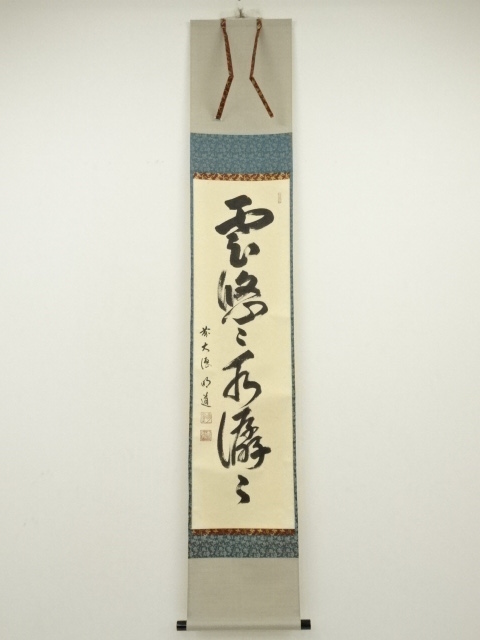 雲悠々水潺々
前大徳明道